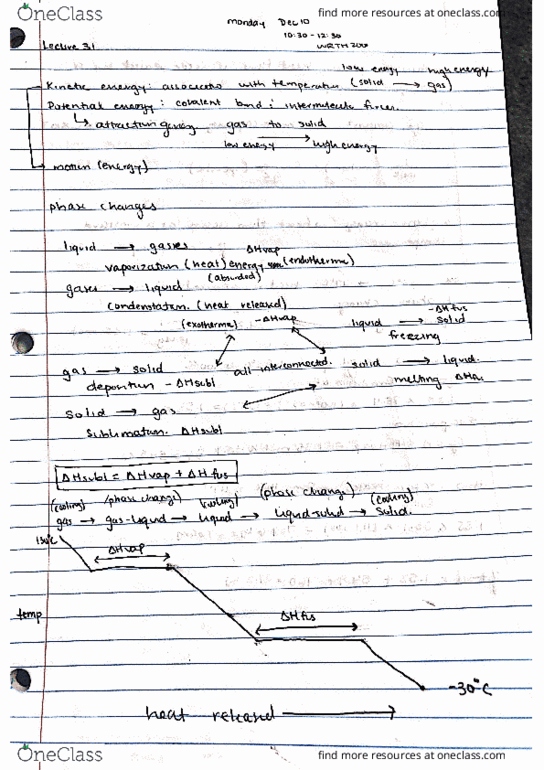 OneClass
find more resources at oneclass.com
monday Dec 10
10:30 - 12:30
Lecture 31
low energy high energy
Kinetic energy: associated with temperature (solid → gas)
Potential energy: covalent bond; intermolecular forces.
↳ attraction gas to solid
low energy → high energy
motion (energy)
phase changes
liquid → gases ΔHvap
vaporization (heat) energy (endotherme)
(absorbed)
gases → liquid
condenstation. (heat released)
(exotherme) -ΔHvap
-ΔHfus
liquid → solid
freezing
gas → solid all interconnected. solid → liquid.
deposition - ΔHsubl melting
solid → gas
sublimation. ΔHsubl
ΔHsubl = ΔHvap + ΔHfus
(cooling) (phase change) (cooling) (phase change) (cooling)
gas → gas-liquid → liquid → liquid-solid → solid.
ΔHvap
temp
ΔHfus
-30°C
heat released →
OneClass
find more resources at oneclass.com